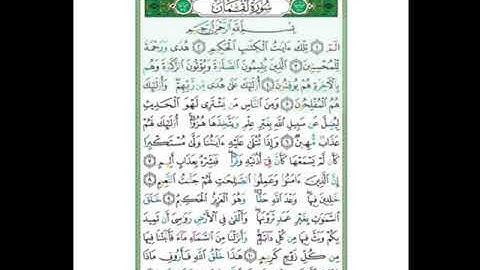 سُورَةُ لُقْمَانَ
بِسْمِ اللَّهِ الرَّحْمَٰنِ الرَّحِيمِ
الٓمٓ ١ تِلْكَ ءَايَٰتُ الْكِتَٰبِ الْحَكِيمِ ٢ هُدًى وَرَحْمَةً
لِّلْمُحْسِنِينَ ٣ الَّذِينَ يُقِيمُونَ الصَّلَوٰةَ وَيُؤْتُونَ الزَّكَوٰةَ وَهُم
بِالْأَخِرَةِ هُمْ يُوقِنُونَ ٤ أُولَٰئِكَ عَلَىٰ هُدًى مِّن رَّبِّهِمْ ۖ وَأُولَٰئِكَ
هُمُ الْمُفْلِحُونَ ٥ وَمِنَ النَّاسِ مَن يَشْتَرِى لَهْوَ الْحَدِيثِ
لِيُضِلَّ عَن سَبِيلِ اللَّهِ بِغَيْرِ عِلْمٍ وَيَتَّخِذَهَا هُزُوًا ۚ أُولَٰئِكَ لَهُمْ
عَذَابٌ مُّهِينٌ ٦ وَإِذَا تُتْلَىٰ عَلَيْهِ ءَايَٰتُنَا وَلَّىٰ مُسْتَكْبِرًا
كَأَن لَّمْ يَسْمَعْهَا كَأَنَّ فِى أُذُنَيْهِ وَقْرًا ۖ فَبَشِّرْهُ بِعَذَابٍ أَلِيمٍ ٧
إِنَّ الَّذِينَ ءَامَنُوا وَعَمِلُوا الصَّٰلِحَٰتِ لَهُمْ جَنَّٰتُ النَّعِيمِ ٨
خَٰلِدِينَ فِيهَا ۖ وَعْدَ اللَّهِ حَقًّا ۚ وَهُوَ الْعَزِيزُ الْحَكِيمُ ٩ خَلَقَ
السَّمَٰوَٰتِ بِغَيْرِ عَمَدٍ تَرَوْنَهَا ۖ وَأَلْقَىٰ فِى الْأَرْضِ رَوَٰسِىَ أَن تَمِيدَ
بِكُمْ وَبَثَّ فِيهَا مِن كُلِّ دَابَّةٍ ۚ وَأَنزَلْنَا مِنَ السَّمَاءِ مَاءً فَأَنبَتْنَا فِيهَا
مِن كُلِّ زَوْجٍ كَرِيمٍ ١٠ هَٰذَا خَلْقُ اللَّهِ فَأَرُونِى مَاذَا